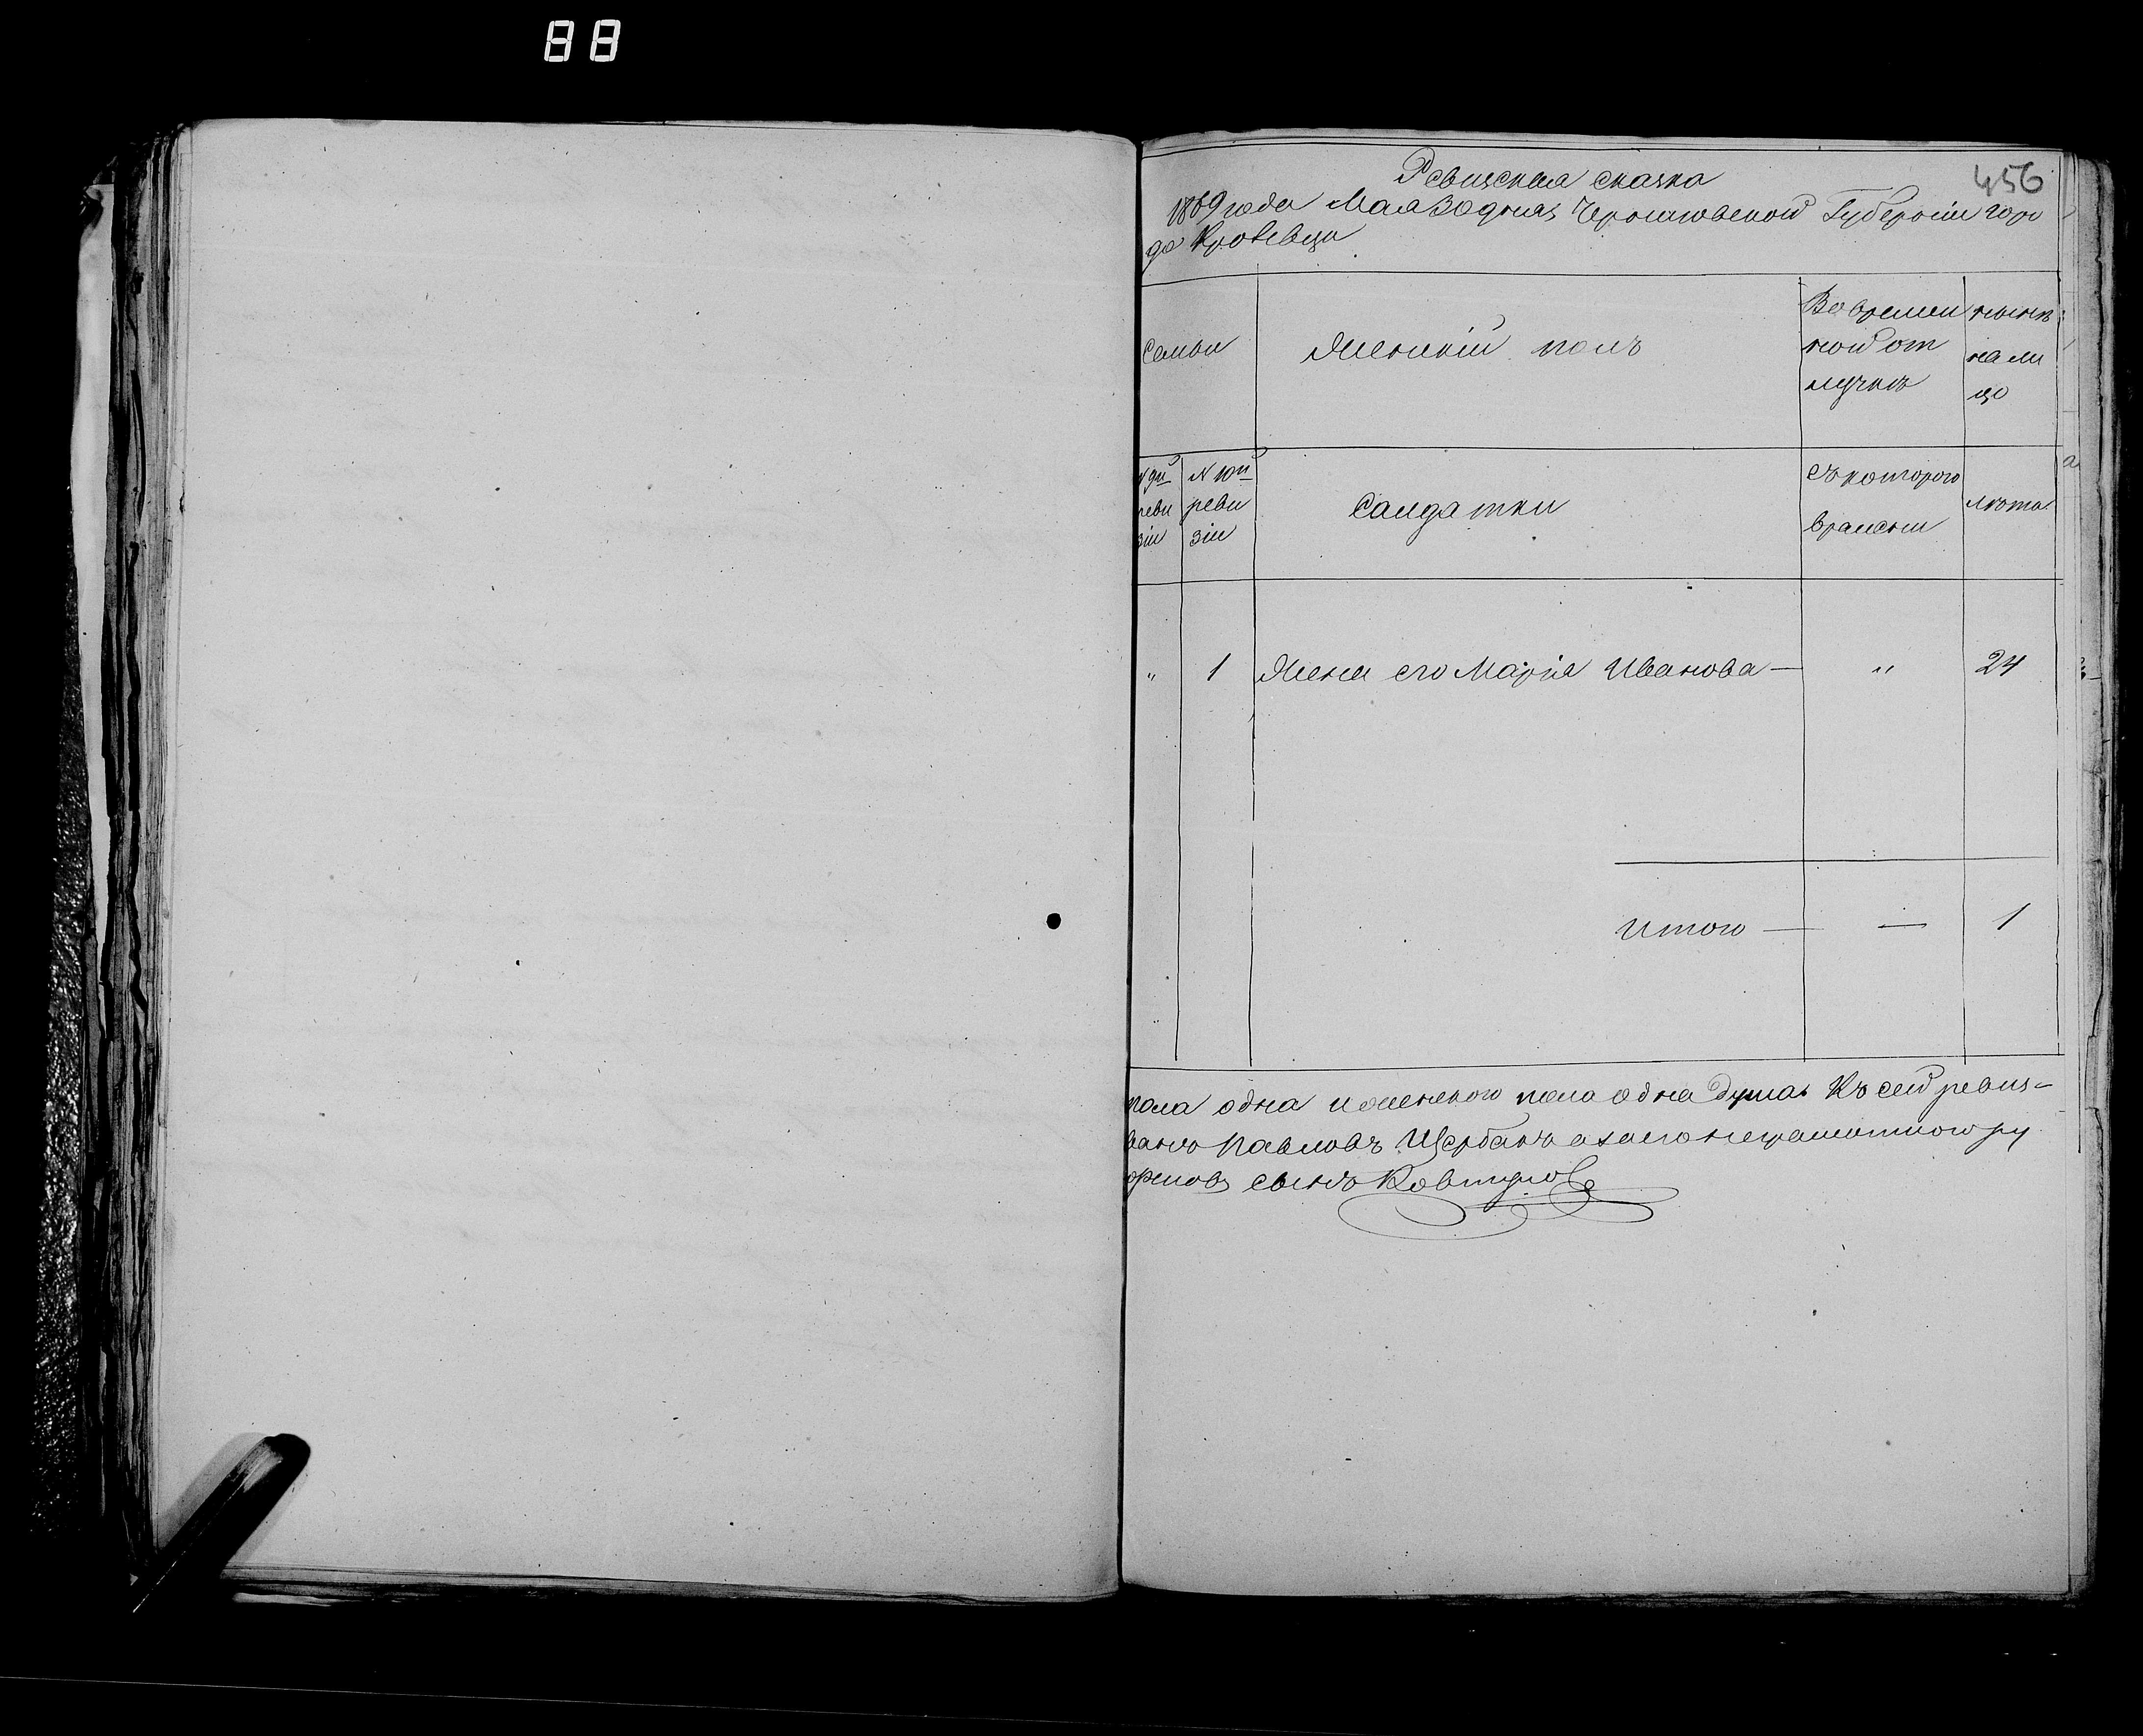 88
456
Ревизская сказка
1869 года Мая 30 дня Черниговской Губерніи горо
да Кролевца
Семьи
Женскій полъ
Во времен
ной от
лучкѣ
нынѣ
на ли
цо
№ 9й
реви
зіи
№ 10й
реви
зіи
Салдатки
Съ которого
времени
лѣта
" 1 Жена его Марія Иванова — " 24
Итого — — 1
пола одна и женского пола одна душа Къ сей ревиз-
Павловъ Щербакъ а за его неграмотного ру
сынъ